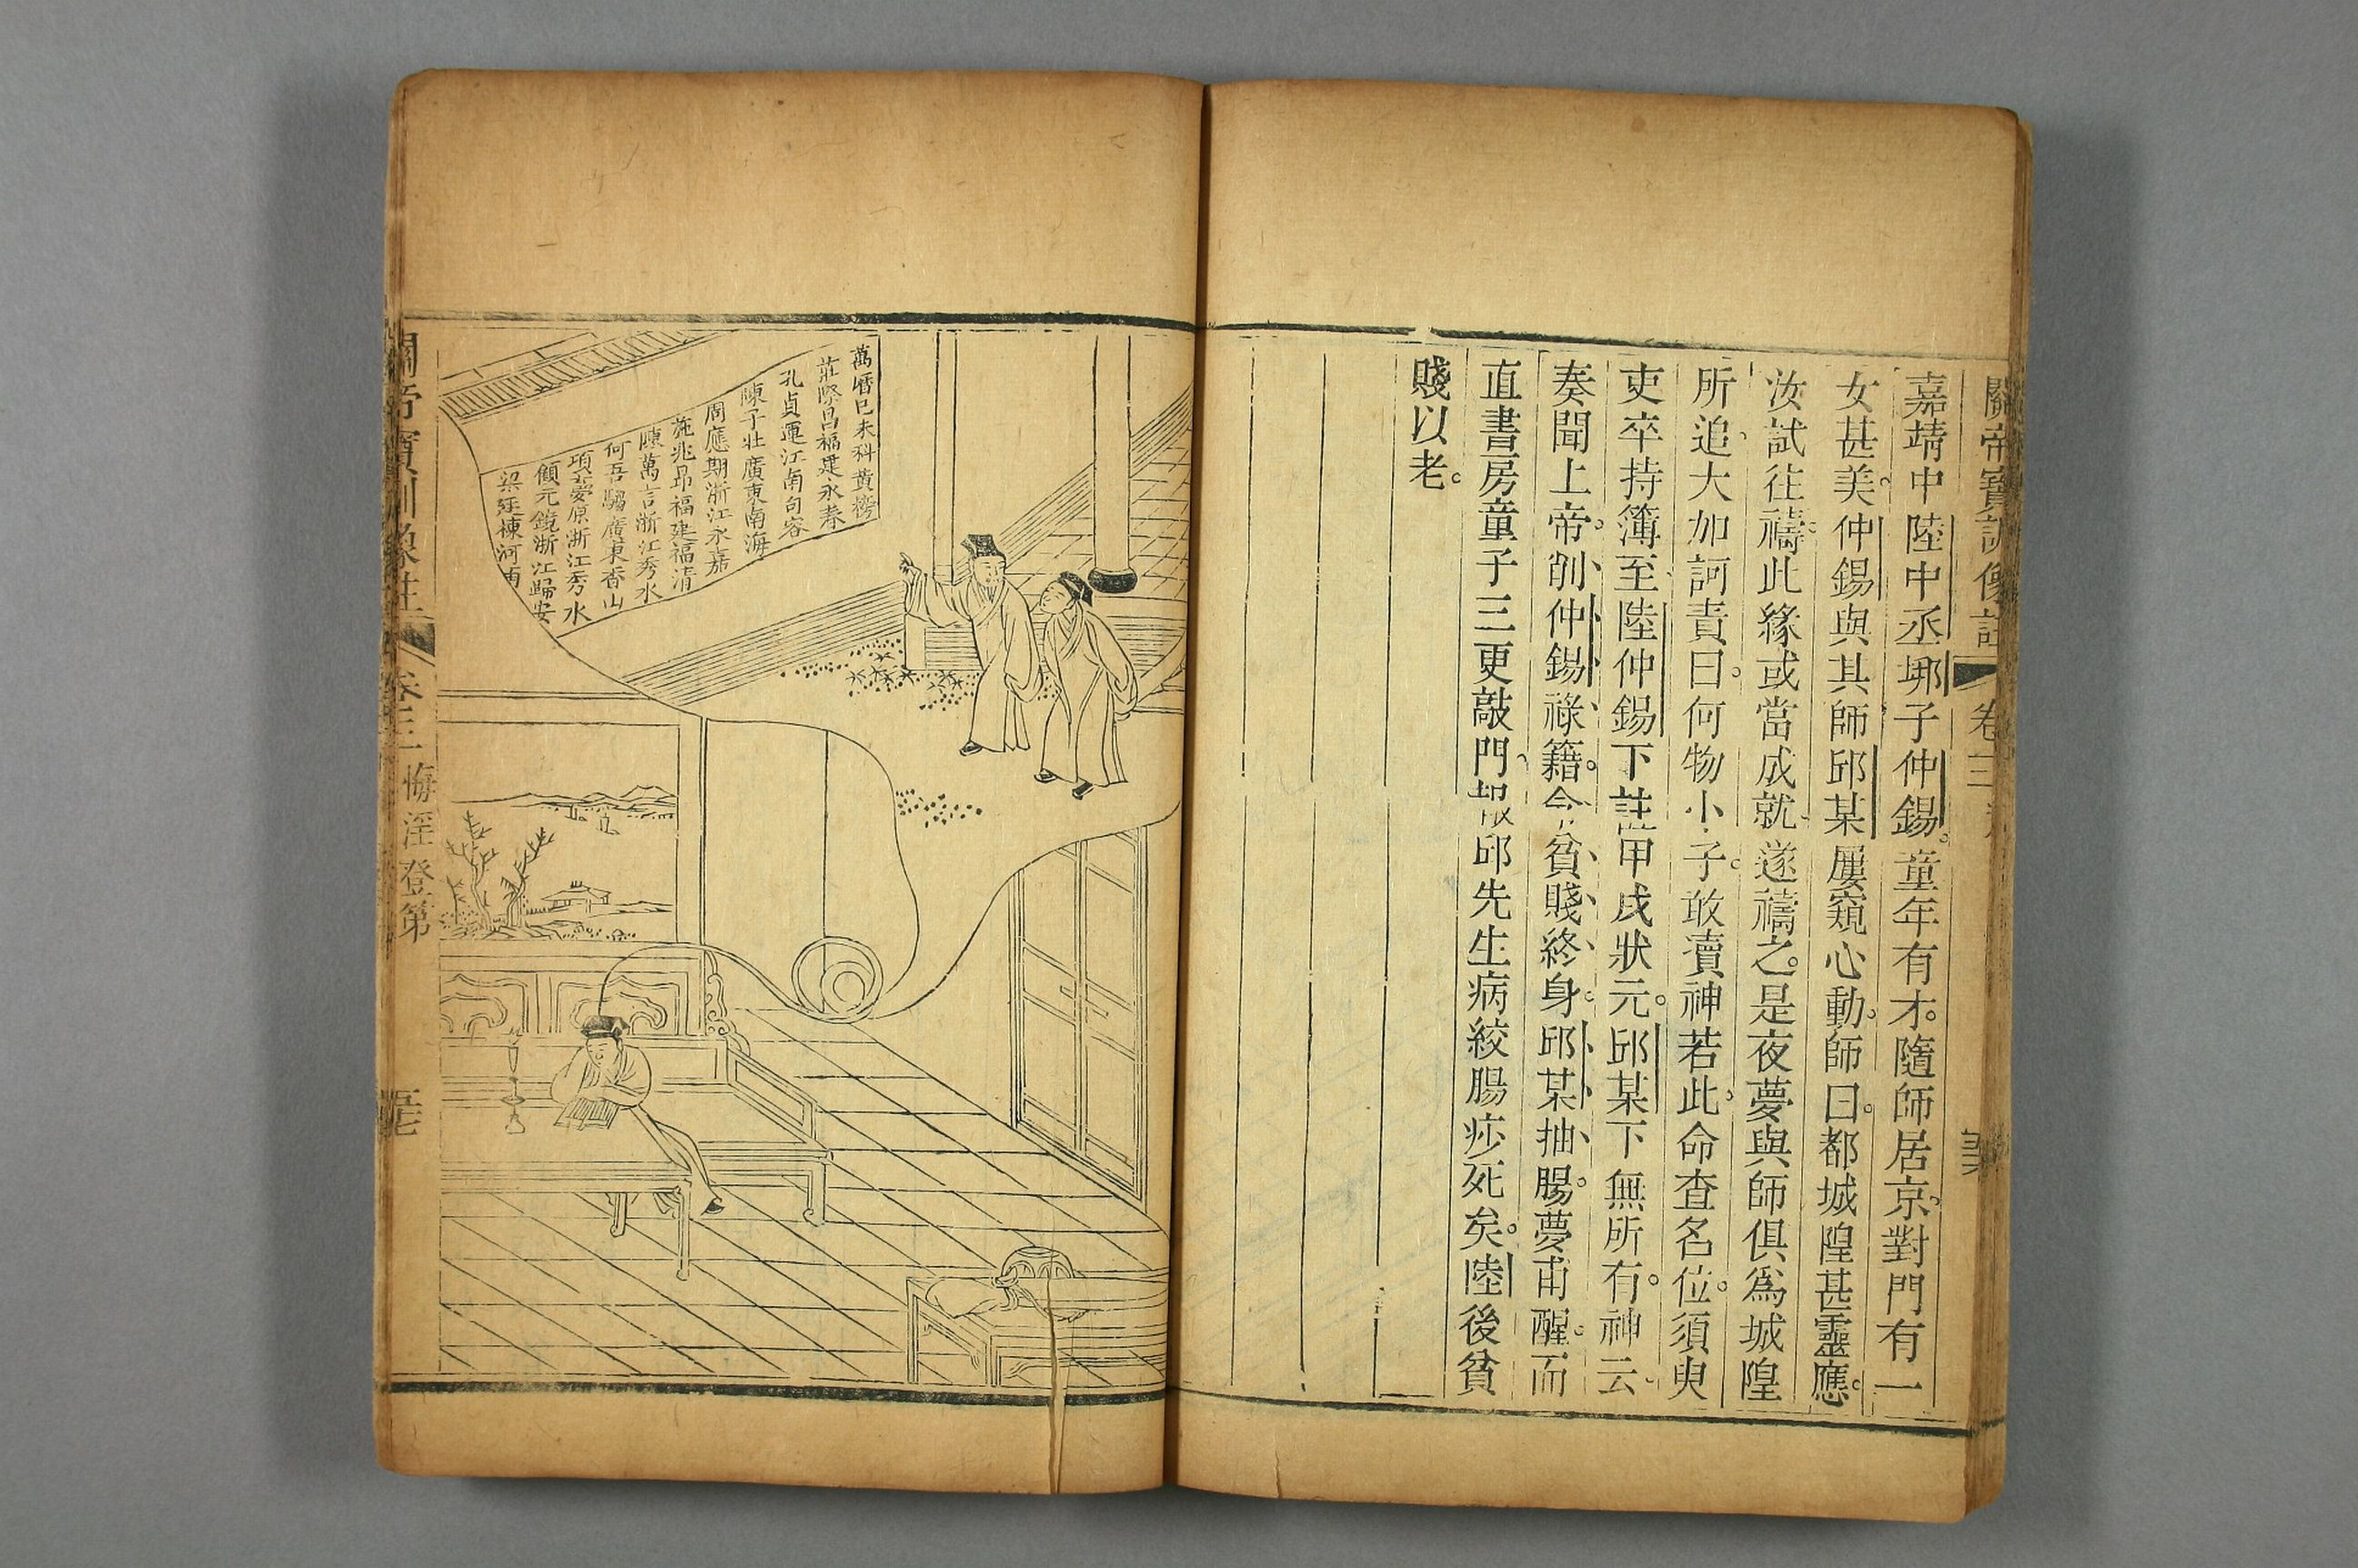 關帝寶訓像註 卷三
嘉靖中陸中丞堈子仲錫。童年有才。隨師居京。對門有一
女甚美。仲錫與其師邱某屢窺心動。師曰。都城隍甚靈應。
汝試往禱。此緣或當成就。遂禱之。是夜夢與師俱爲城隍
所追。大加訶責。曰。何物小子。敢瀆神若此。命查名位。須臾
吏卒持簿至。陸仲錫下註甲戌狀元。邱某下無所有。神云。
奏聞上帝。削仲錫祿籍。令貧賤終身。邱某抽腸。夢甫醒。而
直書房童子三更敲門。報邱先生病絞腸痧死矣。陸後貧
賤以老。
萬曆己未科黃榜
莊際昌福建永春
孔貞運江南句容
陳子壯廣東南海
周應期浙江永嘉
施兆昂福建福清
陳萬言浙江秀水
何吾騶廣東香山
項夢原浙江秀水
顧元鏡浙江歸安
梁廷棟河南
關帝寶訓像註 卷三 悔淫登第 五七